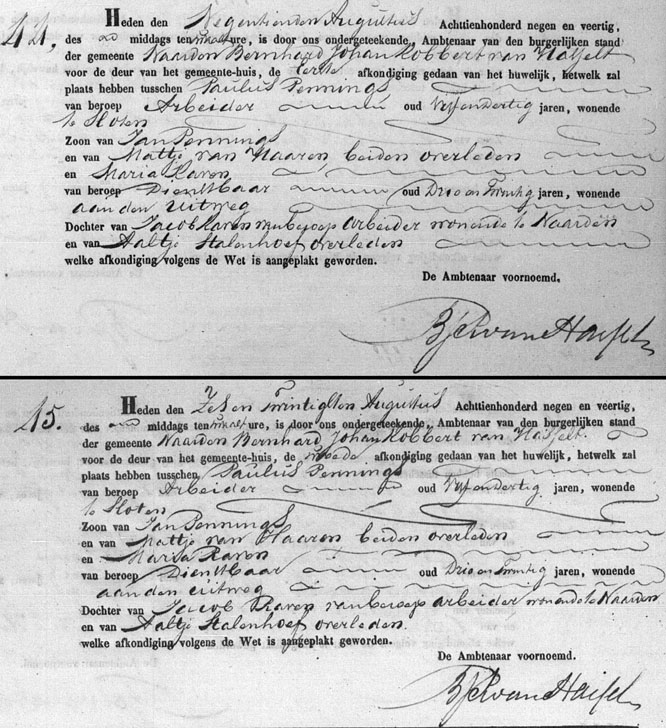 44.
Heden den Negentienden Augustus Achttienhonderd negen en veertig,
des middags ten twaalf ure, is door ons ondergeteekende, Ambtenaar van den burgerlijken stand
der gemeente Naarden Bernhard Johan Robbert van Hasselt
voor de deur van het gemeente-huis, de eerste afkondiging gedaan van het huwelijk, hetwelk zal
plaats hebben tusschen Paulus Pennings
van beroep Arbeider oud Vijfendertig jaren, wonende
te Sloten
Zoon van Jan Pennings
en van Mattje van Haaren, beiden overleden
en Maria Raven
van beroep Dienstbaar oud Drie en Twintig jaren, wonende
aan den uitweg
Dochter van Jacob Raven van beroep arbeider wonende te Naarden
en van Aaltje Stalenhoef overleden
welke afkondiging volgens de Wet is aangeplakt geworden.
De Ambtenaar voornoemd,
BJR van Hasselt
45.
Heden den Zes en Twintigsten Augustus Achttienhonderd negen en veertig,
des middags ten twaalf ure, is door ons ondergeteekende, Ambtenaar van den burgerlijken stand
der gemeente Naarden Bernhard Johan Robbert van Hasselt
voor de deur van het gemeente-huis, de tweede afkondiging gedaan van het huwelijk, hetwelk zal
plaats hebben tusschen Paulus Pennings
van beroep Arbeider oud Vijfendertig jaren, wonende
te Sloten
Zoon van Jan Pennings
en van Mattje van Haaren beiden overleden
en Maria Raven
van beroep Dienstbaar oud Drie en Twintig jaren, wonende
aan den uitweg
Dochter van Jacob Raven van beroep arbeider wonende te Naarden
en van Aaltje Stalenhoef overleden.
welke afkondiging volgens de Wet is aangeplakt geworden.
De Ambtenaar voornoemd.
BJR van Hasselt